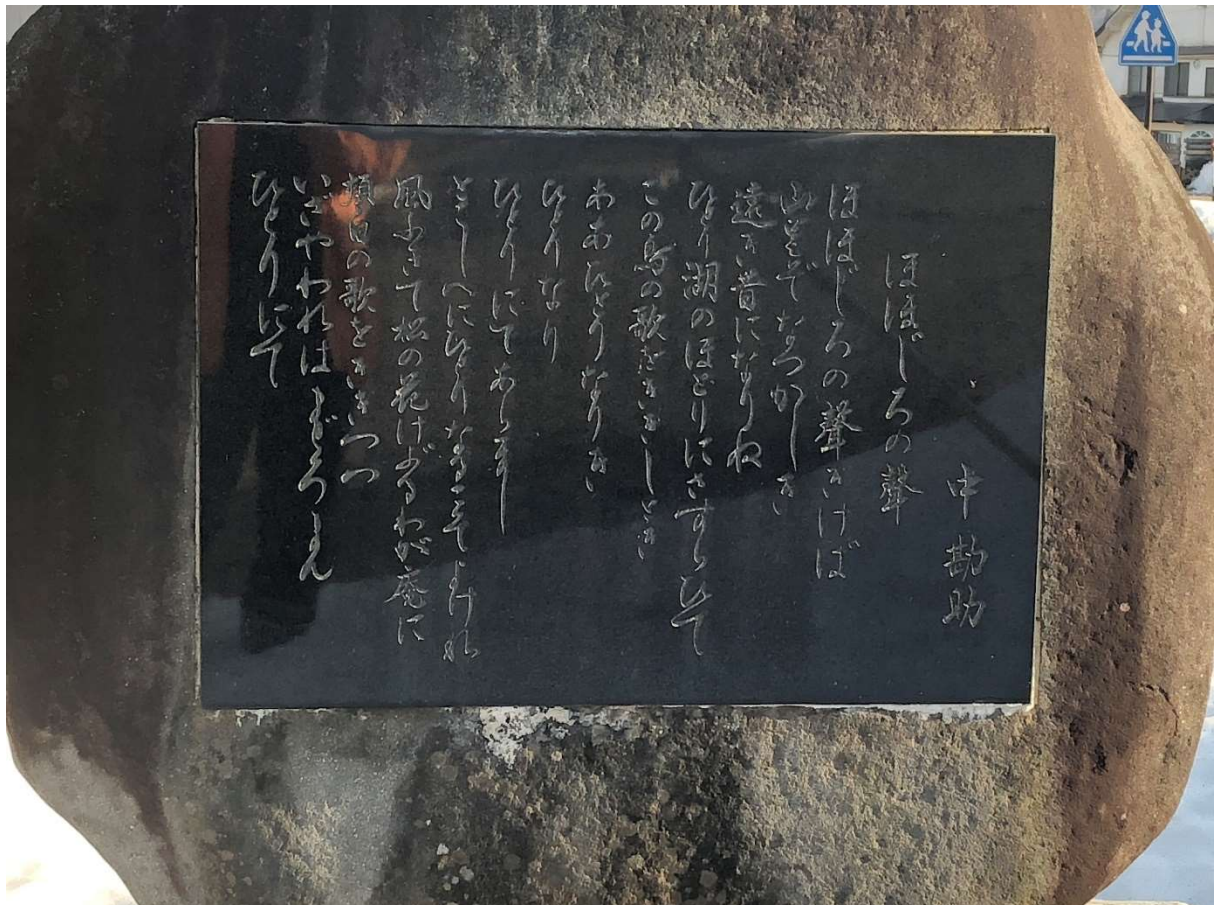 中勘助
ほほじろの聲
ほほじろの聲きけば
山里ぞなつかしき
遠き昔になりぬ
ひとり湖のほとりにさすらひて
この鳥の歌をききしとき
ああひとりなりき
ひとりなり
ひとりにてあらまし
とこしへにひとりなるこそよけれ
風ふきて松の花けぶるわが庵に
頬白の歌をききつつ
いざやわれはまどろまん
ひとりにて